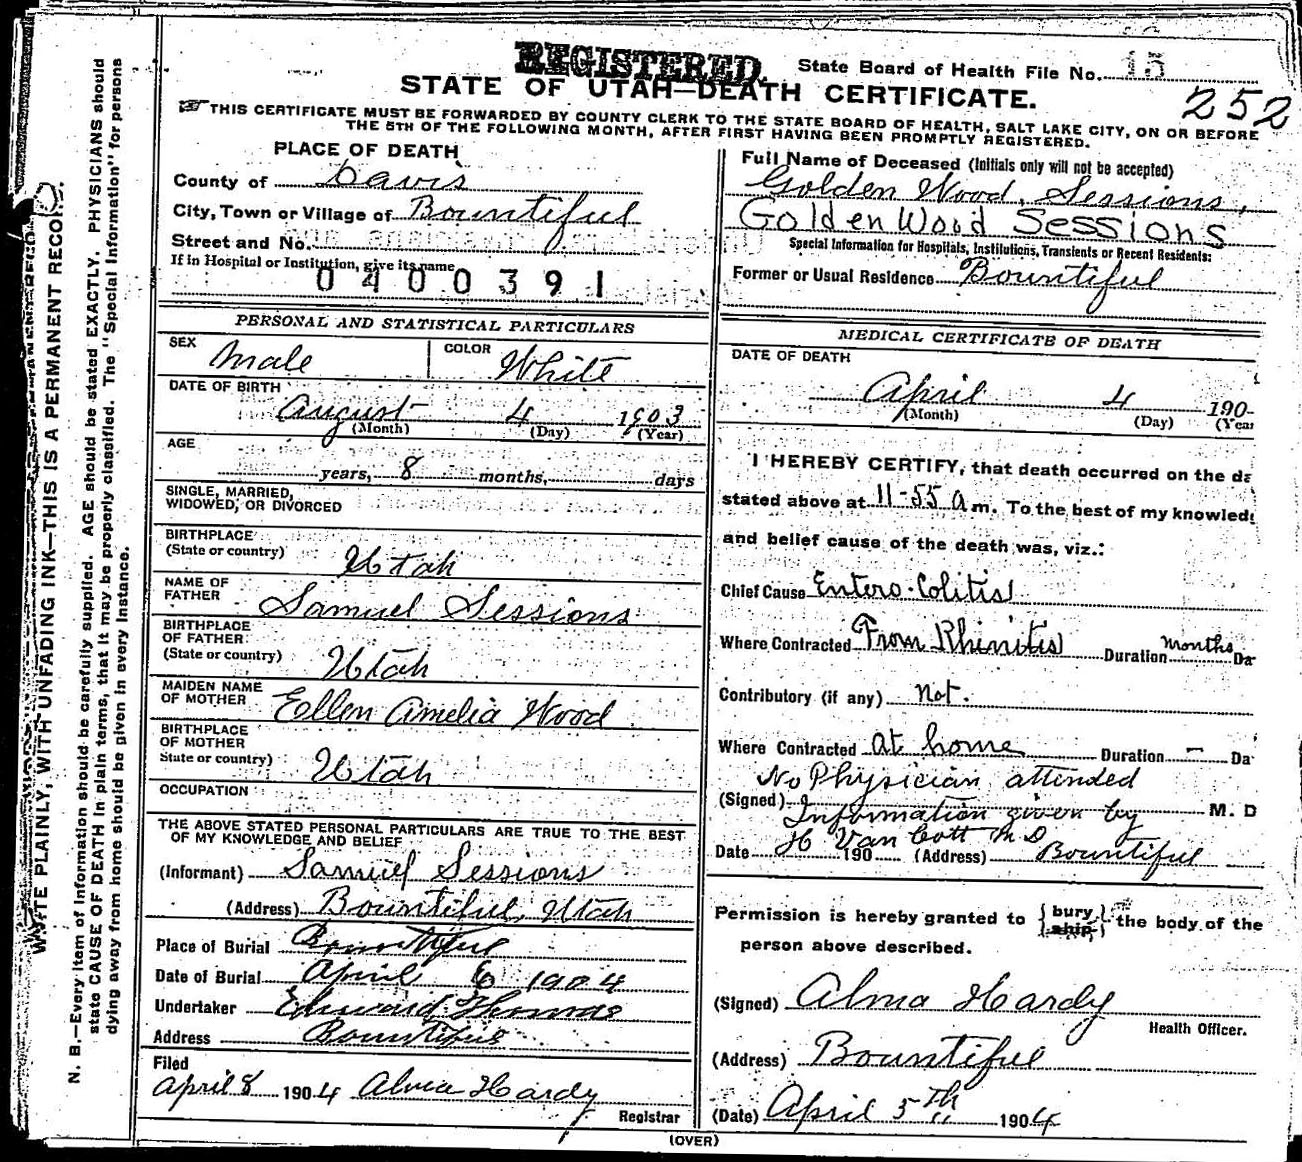 REGISTERED.
State Board of Health File No. 15
252
STATE OF UTAH—DEATH CERTIFICATE.
THIS CERTIFICATE MUST BE FORWARDED BY COUNTY CLERK TO THE STATE BOARD OF HEALTH, SALT LAKE CITY, ON OR BEFORE
THE 5TH OF THE FOLLOWING MONTH, AFTER FIRST HAVING BEEN PROMPTLY REGISTERED.
PLACE OF DEATH
County of Davis
City, Town or Village of Bountiful
Street and No.
If in Hospital or Institution, give its name
0400391
Full Name of Deceased (Initials only will not be accepted)
Golden Wood, Sessions,
Golden Wood Sessions
Special Information for Hospitals, Institutions, Transients or Recent Residents:
Former or Usual Residence Bountiful
PERSONAL AND STATISTICAL PARTICULARS
SEX Male COLOR White
DATE OF BIRTH
August 4 1903
(Month) (Day) (Year)
AGE
years, 8 months, days
SINGLE, MARRIED,
WIDOWED, OR DIVORCED
BIRTHPLACE
(State or country) Utah
NAME OF
FATHER Samuel Sessions
BIRTHPLACE
OF FATHER
(State or country) Utah
MAIDEN NAME
OF MOTHER Ellen Amelia Wood
BIRTHPLACE
OF MOTHER
State or country) Utah
OCCUPATION
THE ABOVE STATED PERSONAL PARTICULARS ARE TRUE TO THE BEST
OF MY KNOWLEDGE AND BELIEF
(Informant) Samuel Sessions
(Address) Bountiful, Utah
Place of Burial Bountiful
Date of Burial April 6 1904
Undertaker Edward Thomas
Address Bountiful
Filed
April 8 1904 Alma Hardy
Registrar
MEDICAL CERTIFICATE OF DEATH
DATE OF DEATH
April 4 190
(Month) (Day) (Yea
I HEREBY CERTIFY, that death occurred on the da
stated above at 11-55 a m. To the best of my knowled
and belief cause of the death was, viz.:
Chief Cause Entero-Colitis
Where Contracted From Rhinitis Duration months Da
Contributory (if any) Not.
Where Contracted at home Duration — Da
No Physician attended
(Signed) Information given by M. D
H Van Cott M D
Date 190 (Address) Bountiful
Permission is hereby granted to {bury ship} the body of the
person above described.
(Signed) Alma Hardy
Health Officer.
(Address) Bountiful
(Date) April 5th 1904
(OVER)
WRITE PLAINLY, WITH UNFADING INK—THIS IS A PERMANENT RECORD.
N. B.—Every item of information should be carefully supplied. AGE should be stated EXACTLY. PHYSICIANS should
state CAUSE OF DEATH in plain terms, that it may be properly classified. The "Special Information" for persons
dying away from home should be given in every instance.